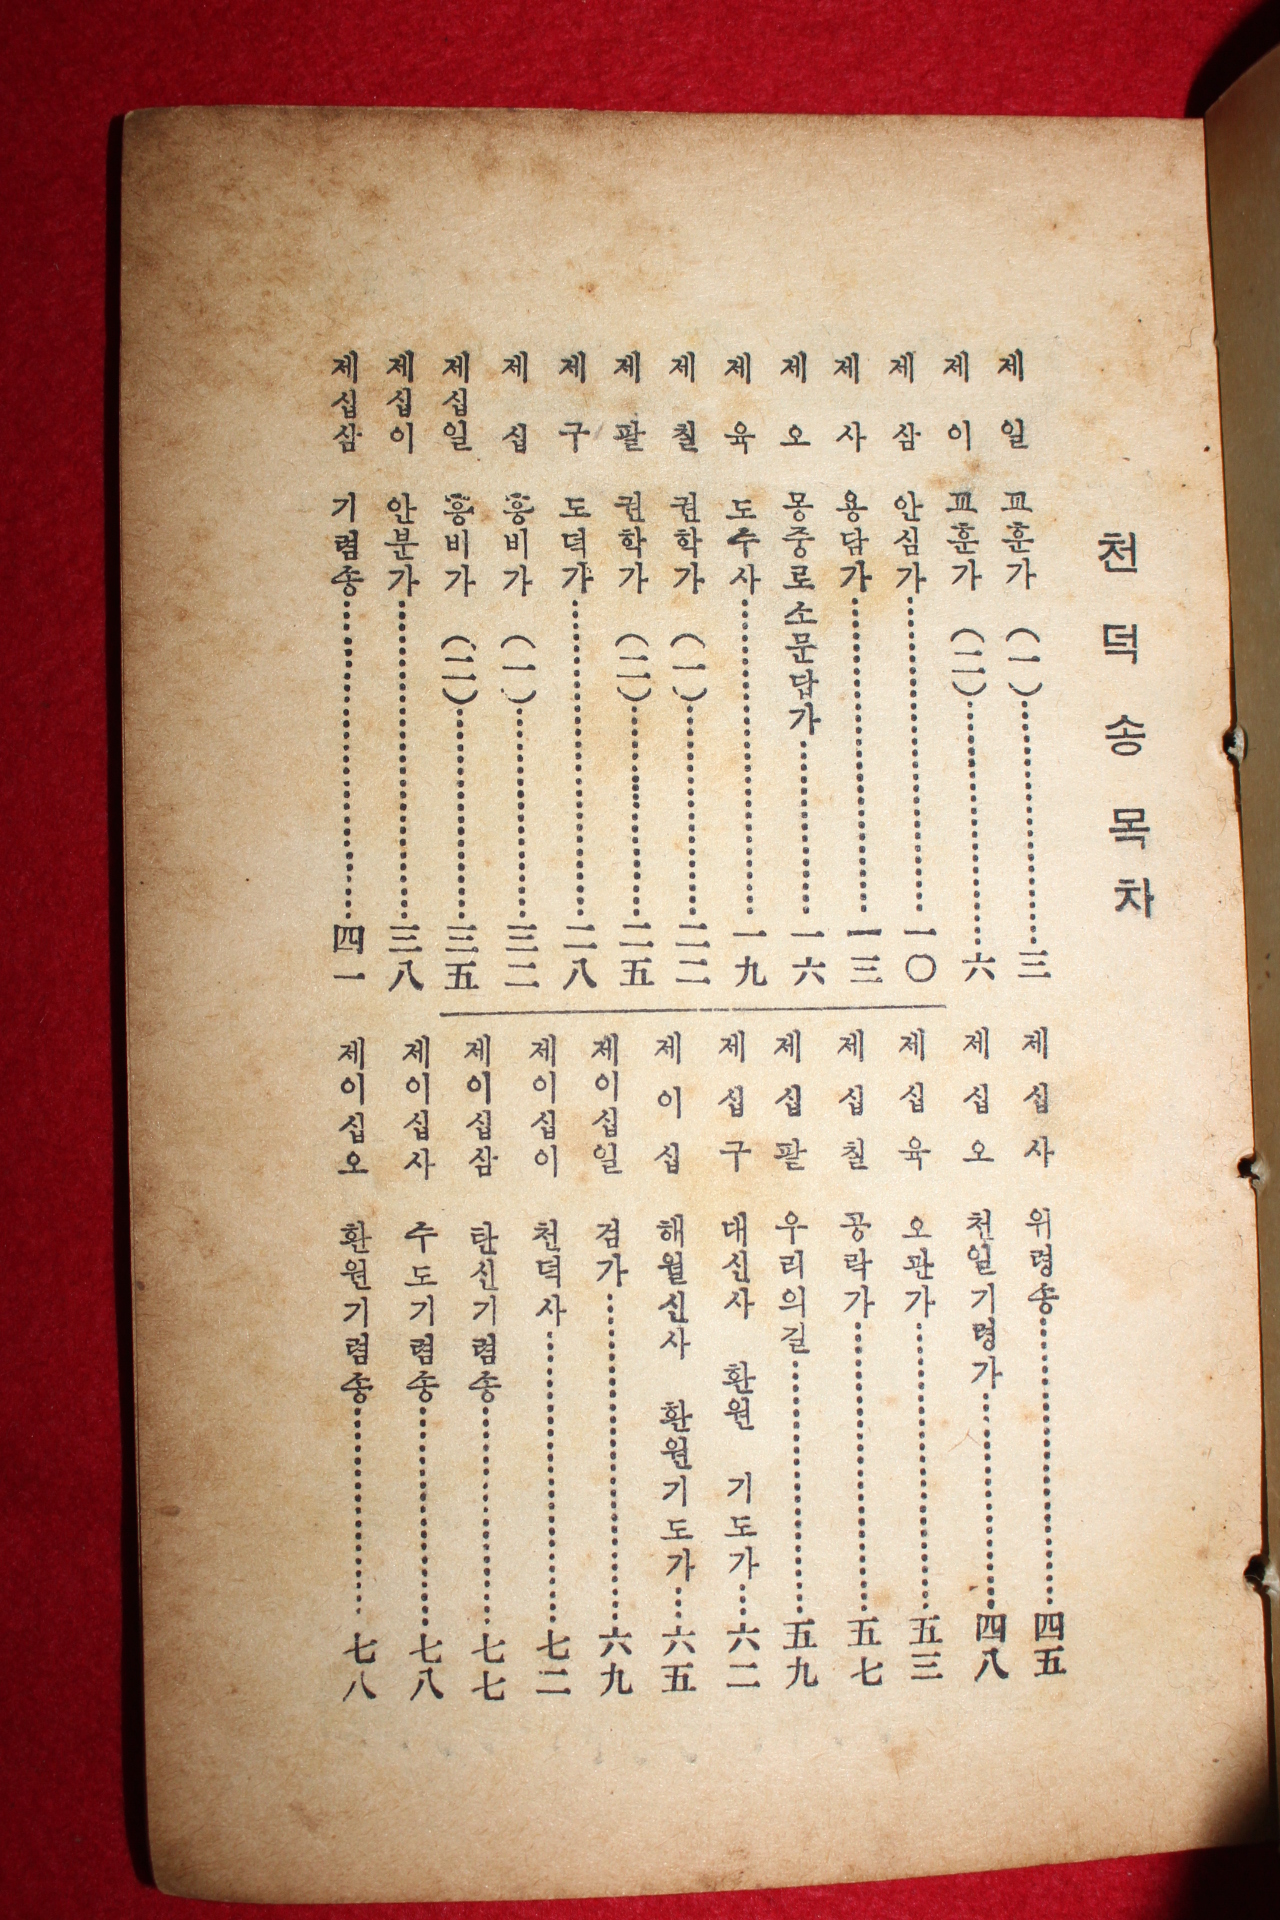 천덕송목차
제일 교훈가 (一)………三
제이 교훈가 (二)………六
제삼 안심가………一〇
제사 용담가………一三
제오 몽중로소문답가………一六
제육 도수사………一九
제칠 권학가 (一)………二二
제팔 권학가 (二)………二五
제구 도덕가………二八
제십 흥비가 (一)………三二
제십일 흥비가 (二)………三五
제십이 안분가………三八
제십삼 기렴송………四一
제십사 위령송………四五
제십오 천일기령가………四八
제십육 오관가………五三
제십칠 공락가………五七
제십팔 우리의길………五九
제십구 대신사 환원 기도가………六二
제이십 해월신사 환원기도가………六五
제이십일 검가………六九
제이십이 천덕사………七二
제이십삼 탄신기렴송………七七
제이십사 수도기렴송………七八
제이십오 환원기렴송………七八